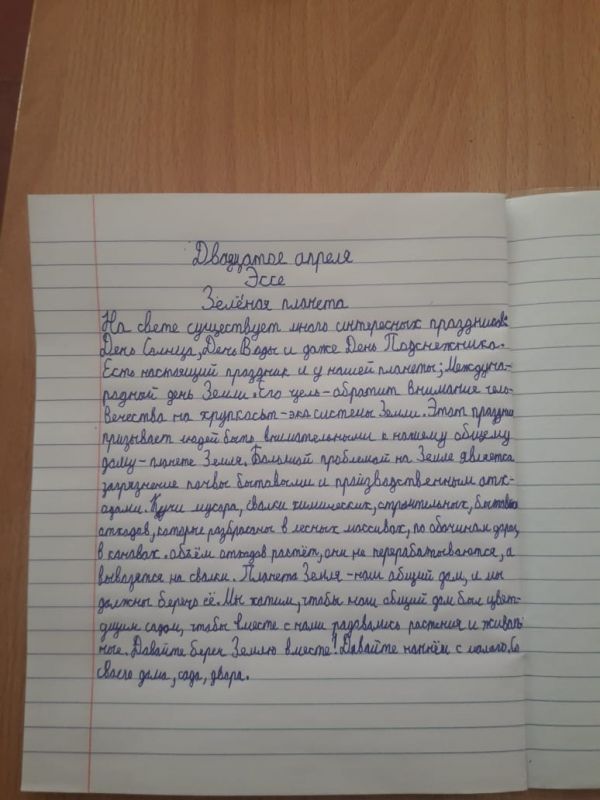 Двадцатое апреля
Эссе
Зелёная планета
На свете существует много интересных праздников:
День Солнца, День Воды и даже День Подснежника.
Есть настоящий праздник и у нашей планеты; Междуна-
радный день Земли. Его цель-обратит внимание чело-
вечества на хрупкасьт-экасистемы Земли. Этот праздник
призывает людей быть внимательными к нашему общему
дому-планете Земле. Большой проблемой на Земле является
загрязнение почвы бытовыми и производственным отх-
одами. Кучи мусора, свалки химических, строительных, бытовых
отходов, которые разбросаны в лесных массивах, по обочинам дорог,
в канавах. объём отходов растёт, они не перерабатываются, а
вывозятся на свалки. Планета Земля-наш общий дом, и мы
должны беречь её. Мы хотим, чтобы наш общий дом был цвет-
ущим садом, чтобы вместе с нами радовались растения и живот-
ные. Давайте береч Землю вместе! Давайте начнём с малого. Со
своего дома, сада, двора.